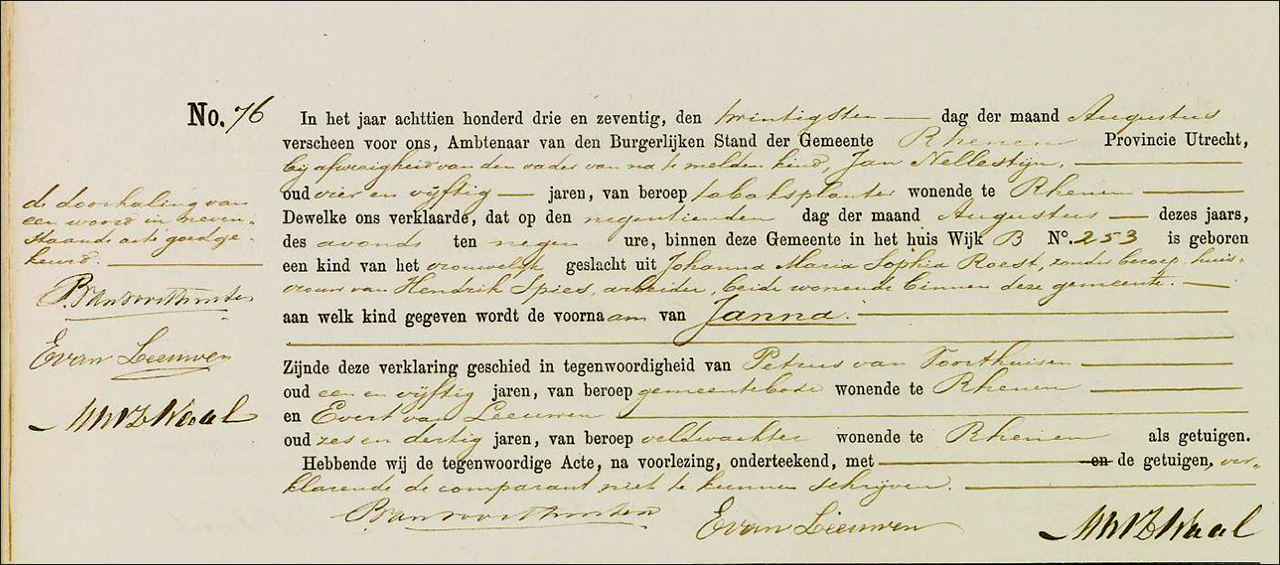 No. 76 In het jaar achttien honderd drie en zeventig, den twintigsten dag der maand Augustus
verscheen voor ons, Ambtenaar van den Burgerlijken Stand der Gemeente Rhenen Provincie Utrecht,
bij afwezigheid van den vader van na te melden kind, Jan Nellestijn.
oud vier en vijftig jaren, van beroep tabaksplanter wonende te Rhenen
Dewelke ons verklaarde, dat op den negentienden dag der maand Augustus dezes jaars,
des avonds ten negen ure, binnen deze Gemeente in het huis Wijk B No. 253 is geboren
een kind van het vrouwelijk geslacht uit Johanna Maria Sophia Roest, zonder beroep, huis-
vrouw van Hendrik Spies, arbeider, beide wonende binnen deze gemeente.
aan welk kind gegeven wordt de voornaam van Janna.
Zijnde deze verklaring geschied in tegenwoordigheid van Petrus van Voorthuisen
oud een en vijftig jaren, van beroep gemeentebode wonende te Rhenen
en Evert van Leeuwen
oud zes en dertig jaren, van beroep veldwachter wonende te Rhenen als getuigen.
Hebbende wij de tegenwoordige Acte, na voorlezing, onderteekend, met en de getuigen, ver-
klarende de comparant niet te kunnen schrijven.
E van Leeuwen
de doorhaling van
een woord in neven-
staande acte goedge-
keurd.
E van Leeuwen